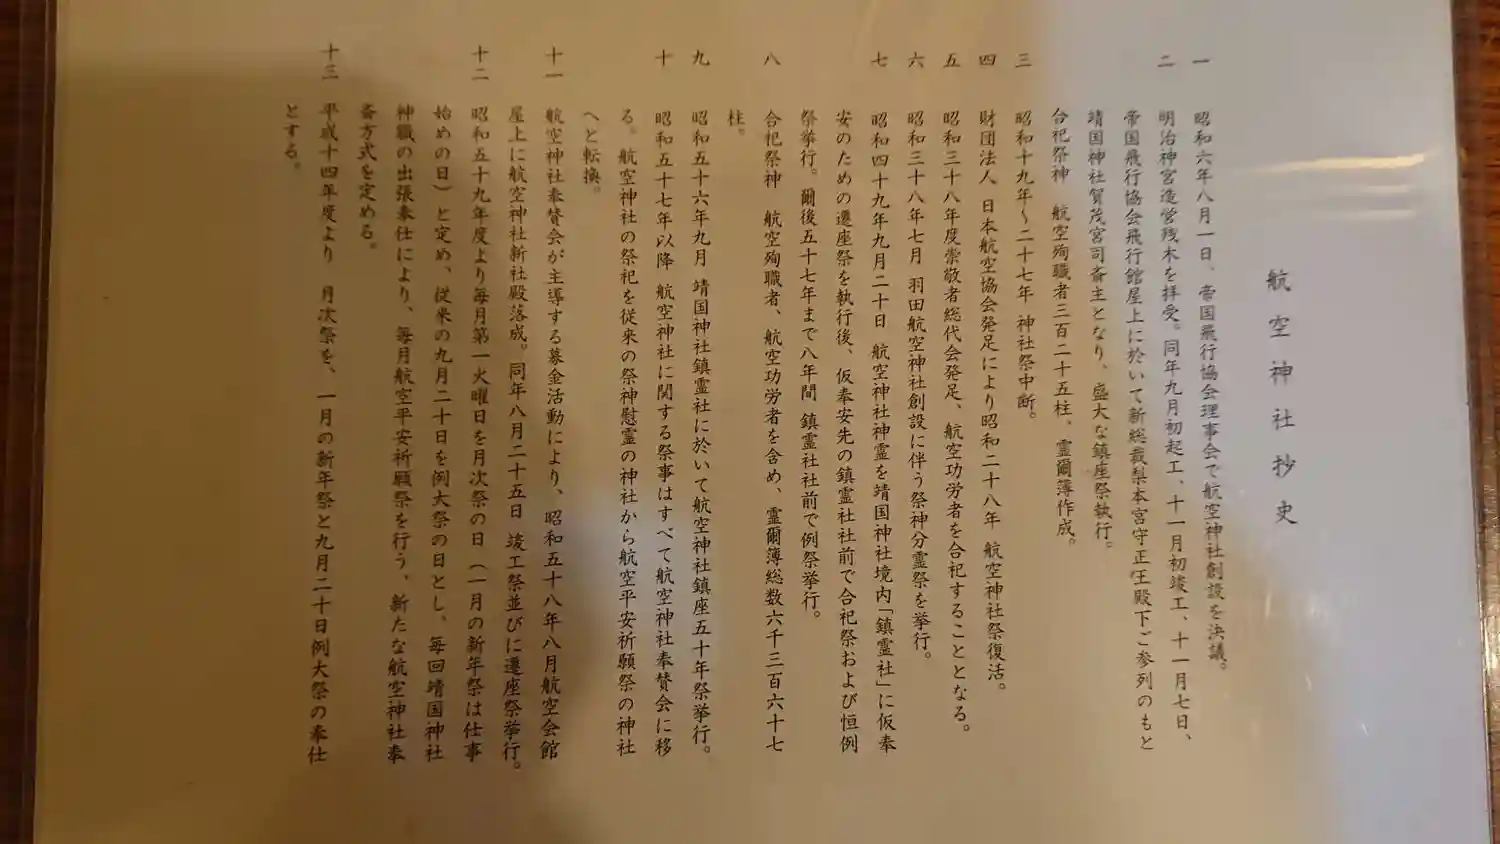 航空神社抄史
一 昭和六年八月一日、帝国飛行協会理事会で航空神社創設を決議。
二 明治神宮造営残木を拝受。同年九月初起工、十一月初竣工、十一月七日、
帝国飛行協会飛行館屋上に於いて新総裁梨本宮守正王殿下ご参列のもと
靖国神社賀茂宮司斎主となり、盛大な鎮座祭執行。
合祀祭神 航空殉職者三百二十五柱、霊爾簿作成。
三 昭和十九年~二十七年 神社祭中断。
四 財団法人 日本航空協会発足により昭和二十八年 航空神社祭復活。
五 昭和三十八年度崇敬者総代会発足、航空功労者を合祀することとなる。
六 昭和三十八年七月 羽田航空神社創設に伴う祭神分霊祭を挙行。
七 昭和四十九年九月二十日 航空神社神霊を靖国神社境内「鎮霊社」に仮奉
安のための遷座祭を執行後、仮奉安先の鎮霊社社前で合祀祭および恒例
祭挙行。爾後五十七年まで八年間 鎮霊社社前で例祭挙行。
八 合祀祭神 航空殉職者、航空功労者を含め、霊爾簿総数六千三百六十七
柱。
九 昭和五十六年九月 靖国神社鎮霊社に於いて航空神社鎮座五十年祭挙行。
十 昭和五十七年以降 航空神社に関する祭事はすべて航空神社奉賛会に移
る。航空神社の祭祀を従来の祭神慰霊の神社から航空平安祈願祭の神社
へと転換。
十一 航空神社奉賛会が主導する募金活動により、昭和五十八年八月航空会館
屋上に航空神社新社殿落成。同年八月二十五日 竣工祭並びに遷座祭挙行。
十二 昭和五十九年度より毎月第一火曜日を月次祭の日(一月の新年祭は仕事
始めの日)と定め、従来の九月二十日を例大祭の日とし、毎回靖国神社
神職の出張奉仕により、毎月航空平安祈願祭を行う、新たな航空神社奉
斎方式を定める。
十三 平成十四年度より 月次祭を、一月の新年祭と九月二十日例大祭の奉仕
とする。